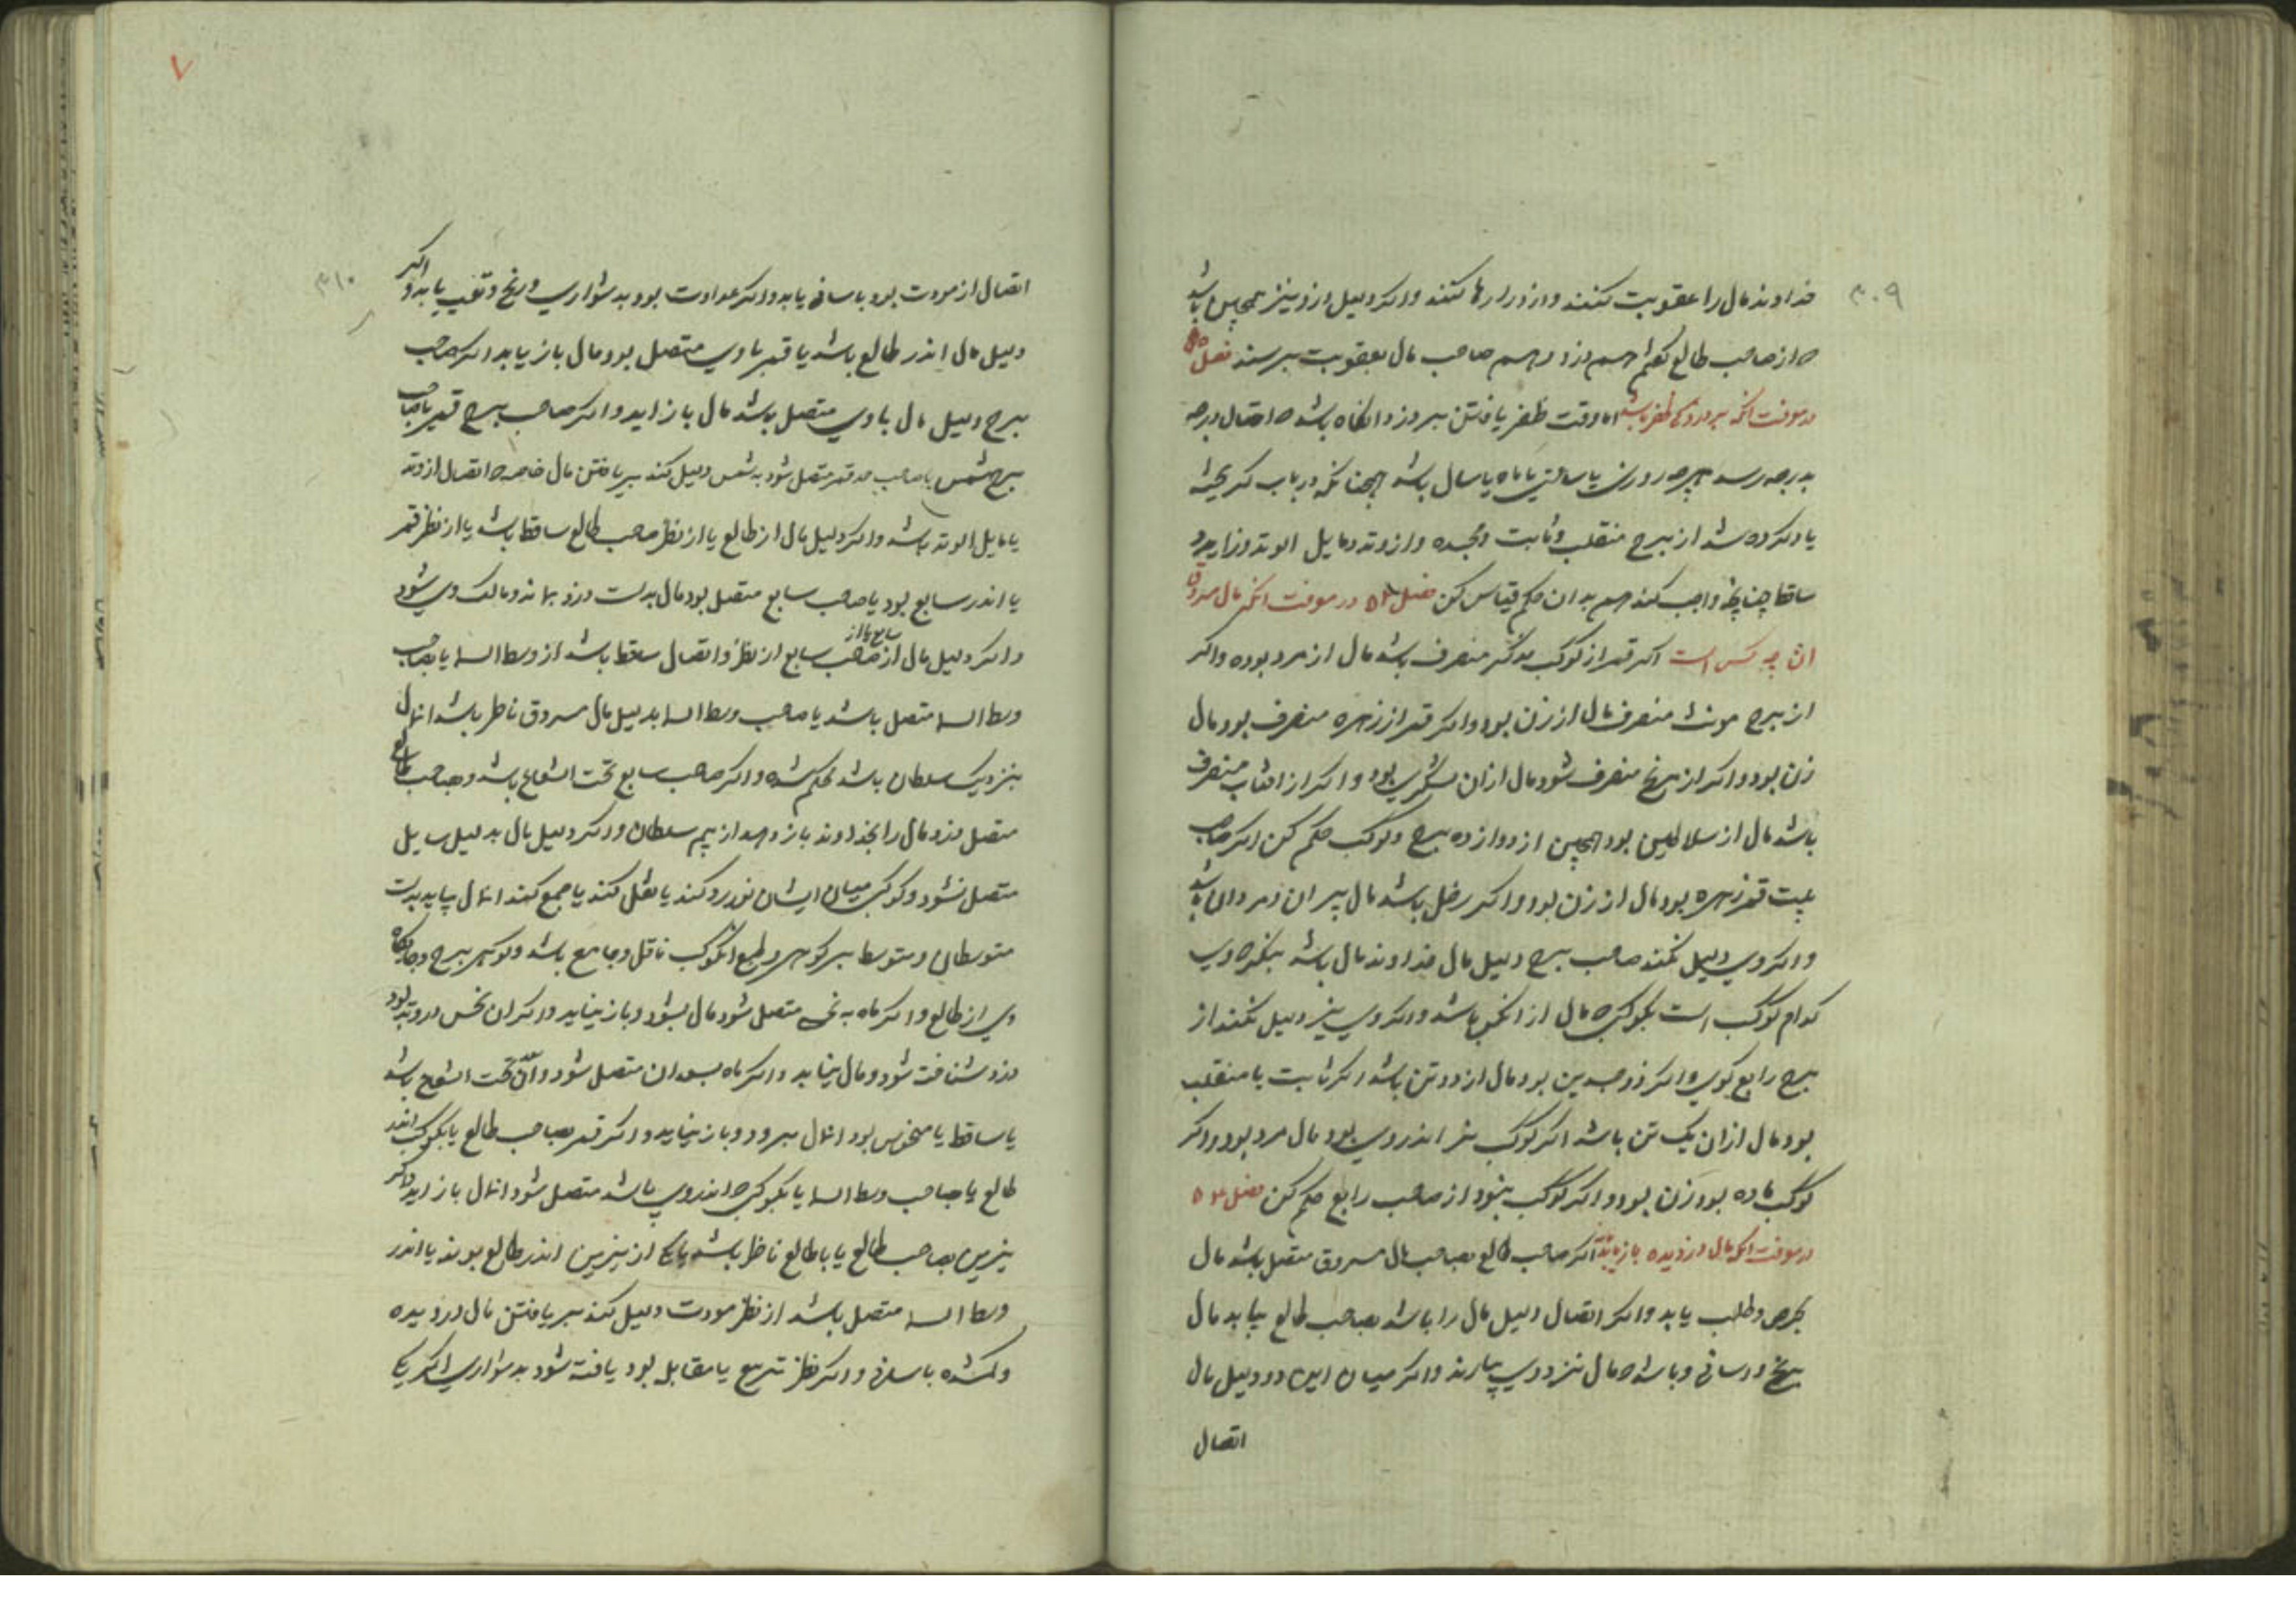 ۳۰۹
خداوند مال را عقوبت کنند و از دزد رها کنند و اگر دلیل دزد نیز همچنین باشد
از صاحب طالع هم دزد و هم صاحب مال بعقوبت برسند فصل
در معرفت آنکه بر دزد کی ظفر باشد اما وقت ظفر یافتن بر دزد آنگاه باشد اتصال درجه
بدرجه رسد روزی یا ساعتی یا ماه یا سال باشد همچنانکه در باب گریخته
یاد کرده شد از برج منقلب و ثابت و مجسده و از وتد و مایل الوتد و زایل
ساقط چنانچه واجب کند هم بدان حکم قیاس کن فصل در معرفت آنکه مال مسروق
ان چه کس است اگر قمر از کوکب مذکر منصرف باشد مال از مرد بوده و اگر
از برج مونث منصرف مال از زن بود و اگر قمر از زهره منصرف بود مال
زن بود و اگر از مریخ منصرف شود مال ازان لشکری بود و اگر از افتاب منصرف
باشد مال از سلاطین بود همچنین از دوازده برج و کوکب حکم کن اگر صاحب
بیت قمر زهره بود مال از زن بود و اگر زحل باشد مال پیران و مردان باشد
و اگر وی دلیل نکند صاحب برج دلیل مال خداوند مال باشد بنگر وی
کدام کوکب است بکوکبی مال از باشد و اگر وی نیز دلیل نکند از
برج رابع کوی و اگر ذوجسدین بود مال از دو تن باشد اگر ثابت یا منقلب
بود مال ازان یک تن باشد اگر کوکب نر اندر وی بود مال مرد بود و اگر
کوکب ماده بود زن بود و اگر کوکب نبود از صاحب رابع حکم کن فصل
در معرفت آنکه مال دزدیده باز یابد اگر صاحب طالع بصاحب مال مسروق متصل باشد مال
بحرص و طلب یابد و اگر اتصال دلیل مال را باشد بصاحب طالع بیابد مال
برنج و اسانی و باشد مال نزد وی بیارند و اگر میان این دو دلیل مال
اتصال
۳۱۰
اتصال از مودت بود باسانی یابد و اگر عداوت بود بدشواری و رنج و تعب یابد و اگر
دلیل مال اندر طالع باشد یا قمر با وی متصل بود مال باز یابد اگر صاحب
برج دلیل مال با وی متصل باشد مال باز اید و اگر صاحب برج قمر با صاحب
برج شمس یا صاحب حد قمر متصل شود به شمس دلیل کند بر یافتن مال خاصه اتصال از وتد
یا مایل الوتد باشد و اگر دلیل مال از طالع یا از نظر صاحب طالع ساقط باشد یا از نظر قمر
یا اندر سابع بود یا صاحب سابع متصل بود مال بدست دزد بماند و مالک وی شود
و اگر دلیل مال از صاحب سابع از نظر و اتصال ساقط باشد از وسط السما یا بصاحب
وسط السما متصل باشد یا صاحب وسط السما بدلیل مال مسروق ناظر باشد انمال
بنزدیک سلطان باشد بحکم شده و اگر صاحب سابع تحت الشعاع باشد و بصاحب طالع
متصل دزد مال را بخداوند باز دهد از بیم سلطان و اگر دلیل مال بدلیل سایل
متصل نشود و کوکبی میان ایشان نور رد کند یا نقل کند یا جمع کند انمال بیاید بدست
متوسطان و متوسط بر کوهر و طبع انکوکب ناقل و جامع باشد و کوهر برج و جایگاه
وی از طالع و اگر ماه به نحسی متصل شود مال بشود و باز نیاید و اگر ان نحس در وتد بود
دزد شناخته شود و مال نیابد و اگر ماه بسعدان متصل شود و ان تحت الشعاع باشد
یا ساقط یا منحوس بود انمال برود و باز نیاید و اگر قمر بصاحب طالع یا بکوکب اندر
طالع یا صاحب وسط السما یا بکوکبی اندر وی باشد متصل شود انمال باز اید و اگر
نیرین بصاحب طالع یا با طالع ناظر باشد یا یکی از نیرین اندر طالع بوند یا اندر
وسط السما متصل باشد از نظر مودت دلیل کند بر یافتن مال دزدیده
و گمشده باسانی و اگر نظر تربیع یا مقابله بود یافته شود بدشواری اگر یکی